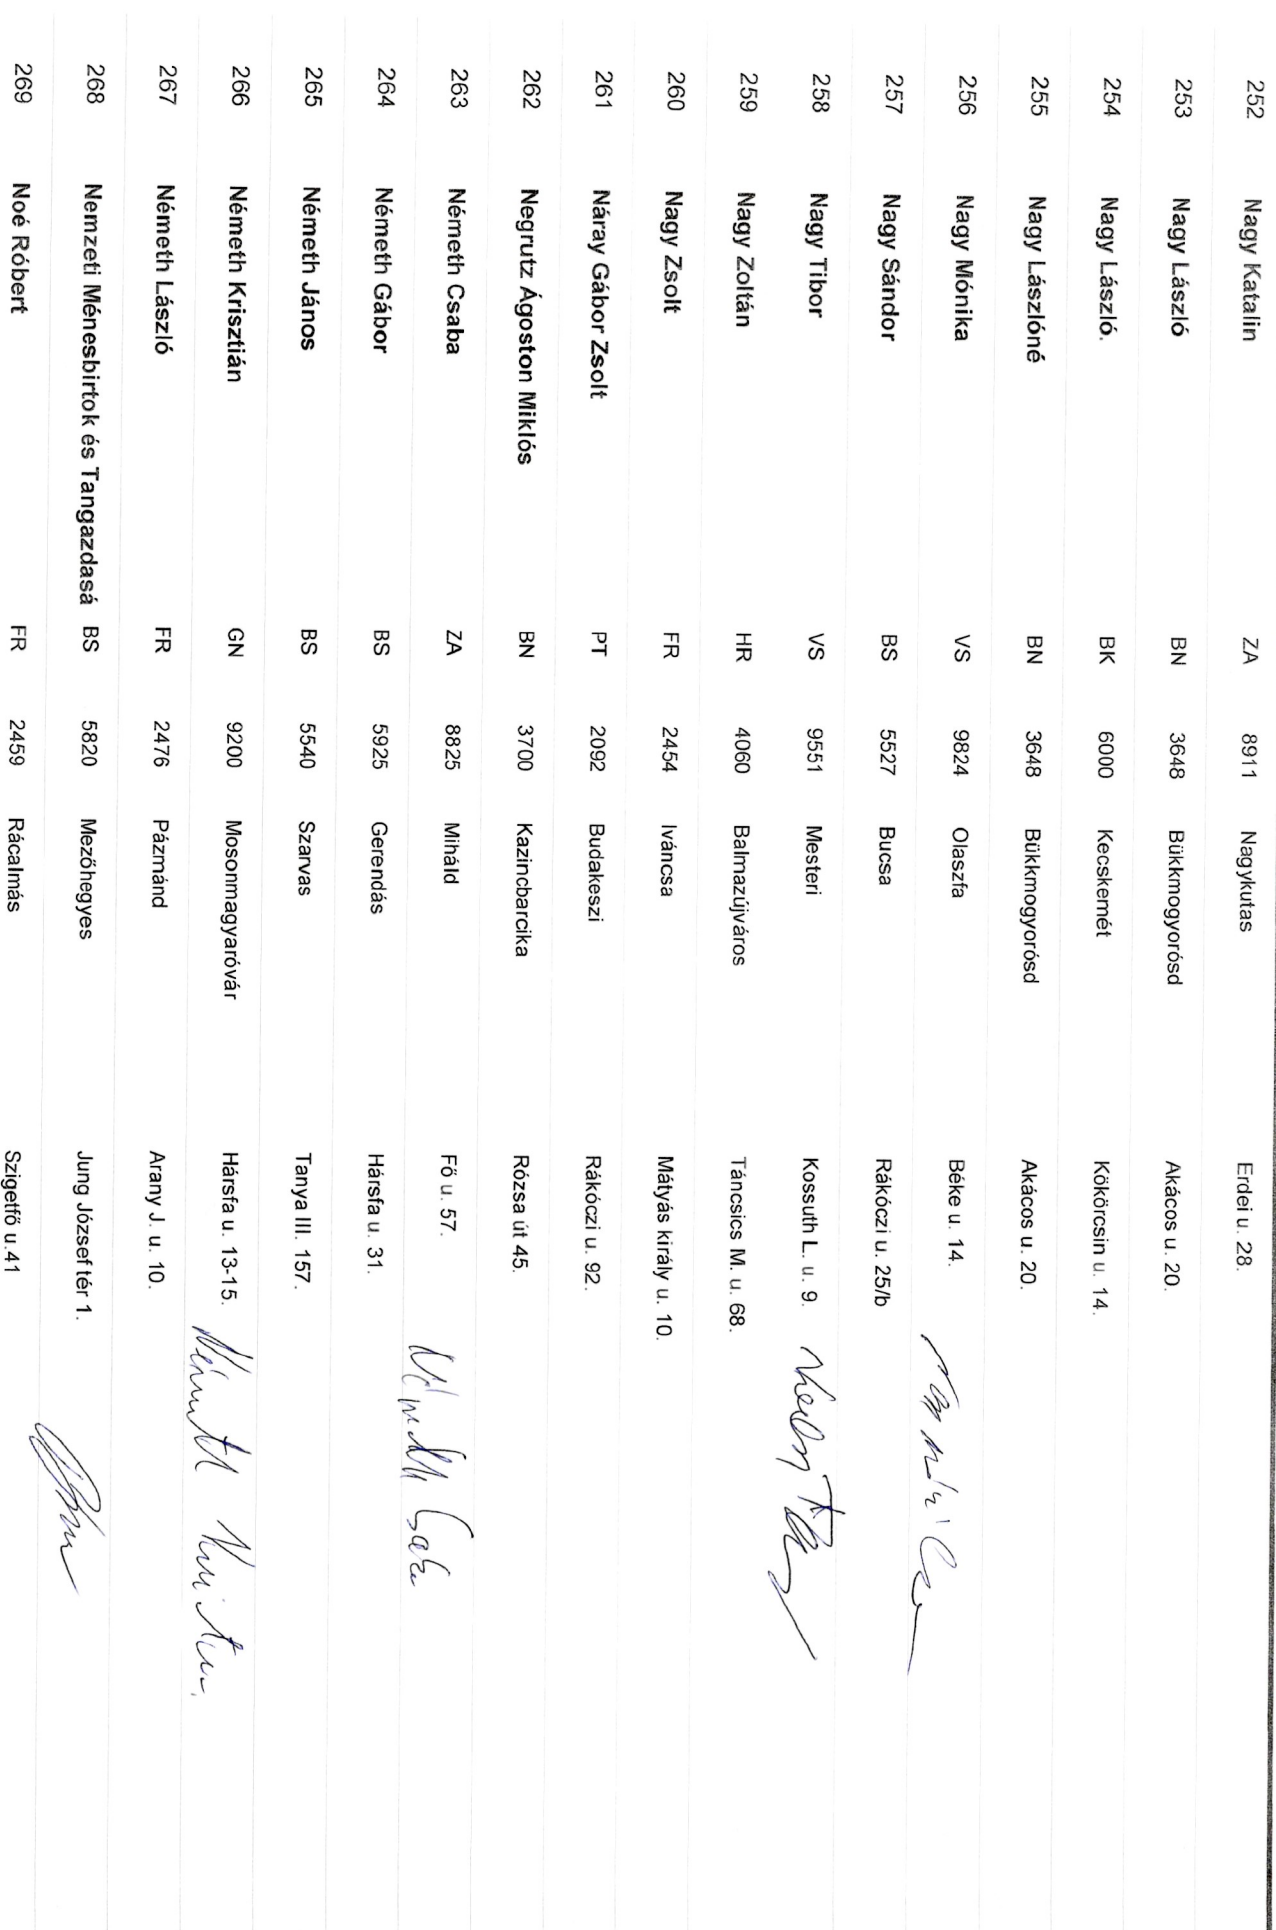 252 Nagy Katalin ZA 8911 Nagykutas Erdei u. 28.
253 Nagy László BN 3648 Bükkmogyorósd Akácos u. 20.
254 Nagy László. BK 6000 Kecskemét Kökörcsin u. 14.
255 Nagy Lászlóné BN 3648 Bükkmogyorósd Akácos u. 20.
256 Nagy Mónika VS 9824 Olaszfa Béke u. 14.
257 Nagy Sándor BS 5527 Bucsa Rákóczi u. 25/b
258 Nagy Tibor VS 9551 Mesteri Kossuth L. u. 9.
259 Nagy Zoltán HR 4060 Balmazújváros Táncsics M. u. 68.
260 Nagy Zsolt FR 2454 Iváncsa Mátyás király u. 10.
261 Náray Gábor Zsolt PT 2092 Budakeszi Rákóczi u. 92.
262 Negrutz Ágoston Miklós BN 3700 Kazincbarcika Rózsa út 45.
263 Németh Csaba ZA 8825 Miháld Fő u. 57. Németh Csaba
264 Németh Gábor BS 5925 Gerendás Hársfa u. 31.
265 Németh János BS 5540 Szarvas Tanya III. 157.
266 Németh Krisztián GN 9200 Mosonmagyaróvár Hársfa u. 13-15. Németh
267 Németh László FR 2476 Pázmánd Arany J. u. 10.
268 Nemzeti Ménesbirtok és Tangazdasá BS 5820 Mezőhegyes Jung József tér 1.
269 Noé Róbert FR 2459 Rácalmás Szigetfő u.41